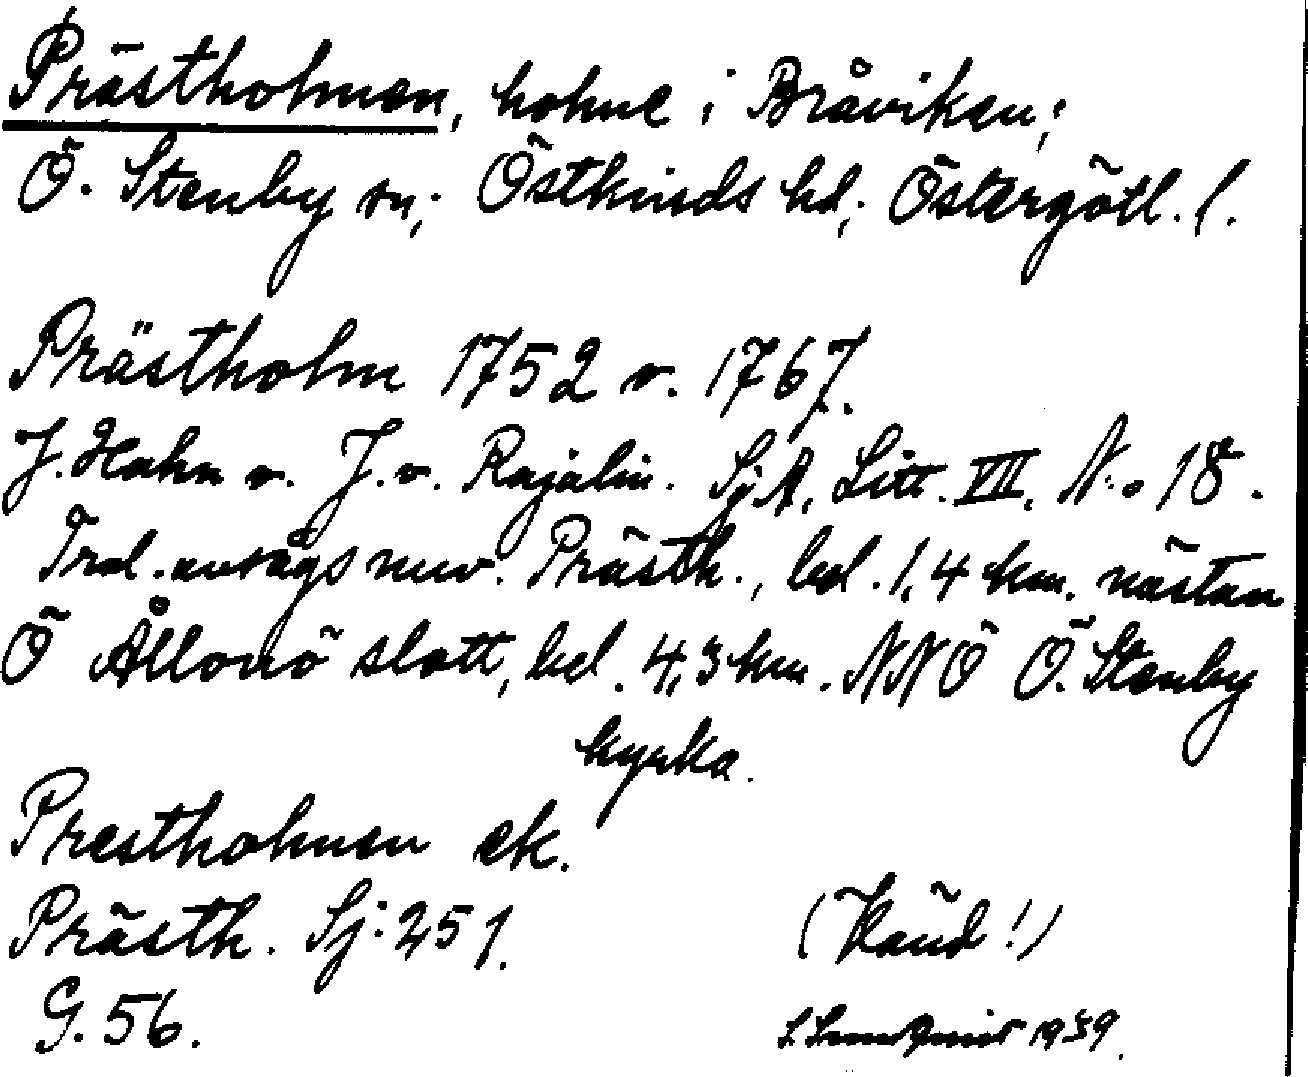 Prästholmen, holme i Bråviken,;
Ö. Stenby sn,; Östkinds hd,; Östergötl. l.
Prästholm 1752 o. 1767.
J. Hahn o. J. v. Rajalin. SjA, Litt. VII, N:o 18.
Trol. avsågs nuv. Prästh., bel. 1,4 km. nästan
Ö Ållonö slott, bel. 4,3 km. NNÖ Ö. Stenby
kyrka.
Prestholmen ek.
Prästh. Sj: 251. (Känd!)
G. 56. 1939.